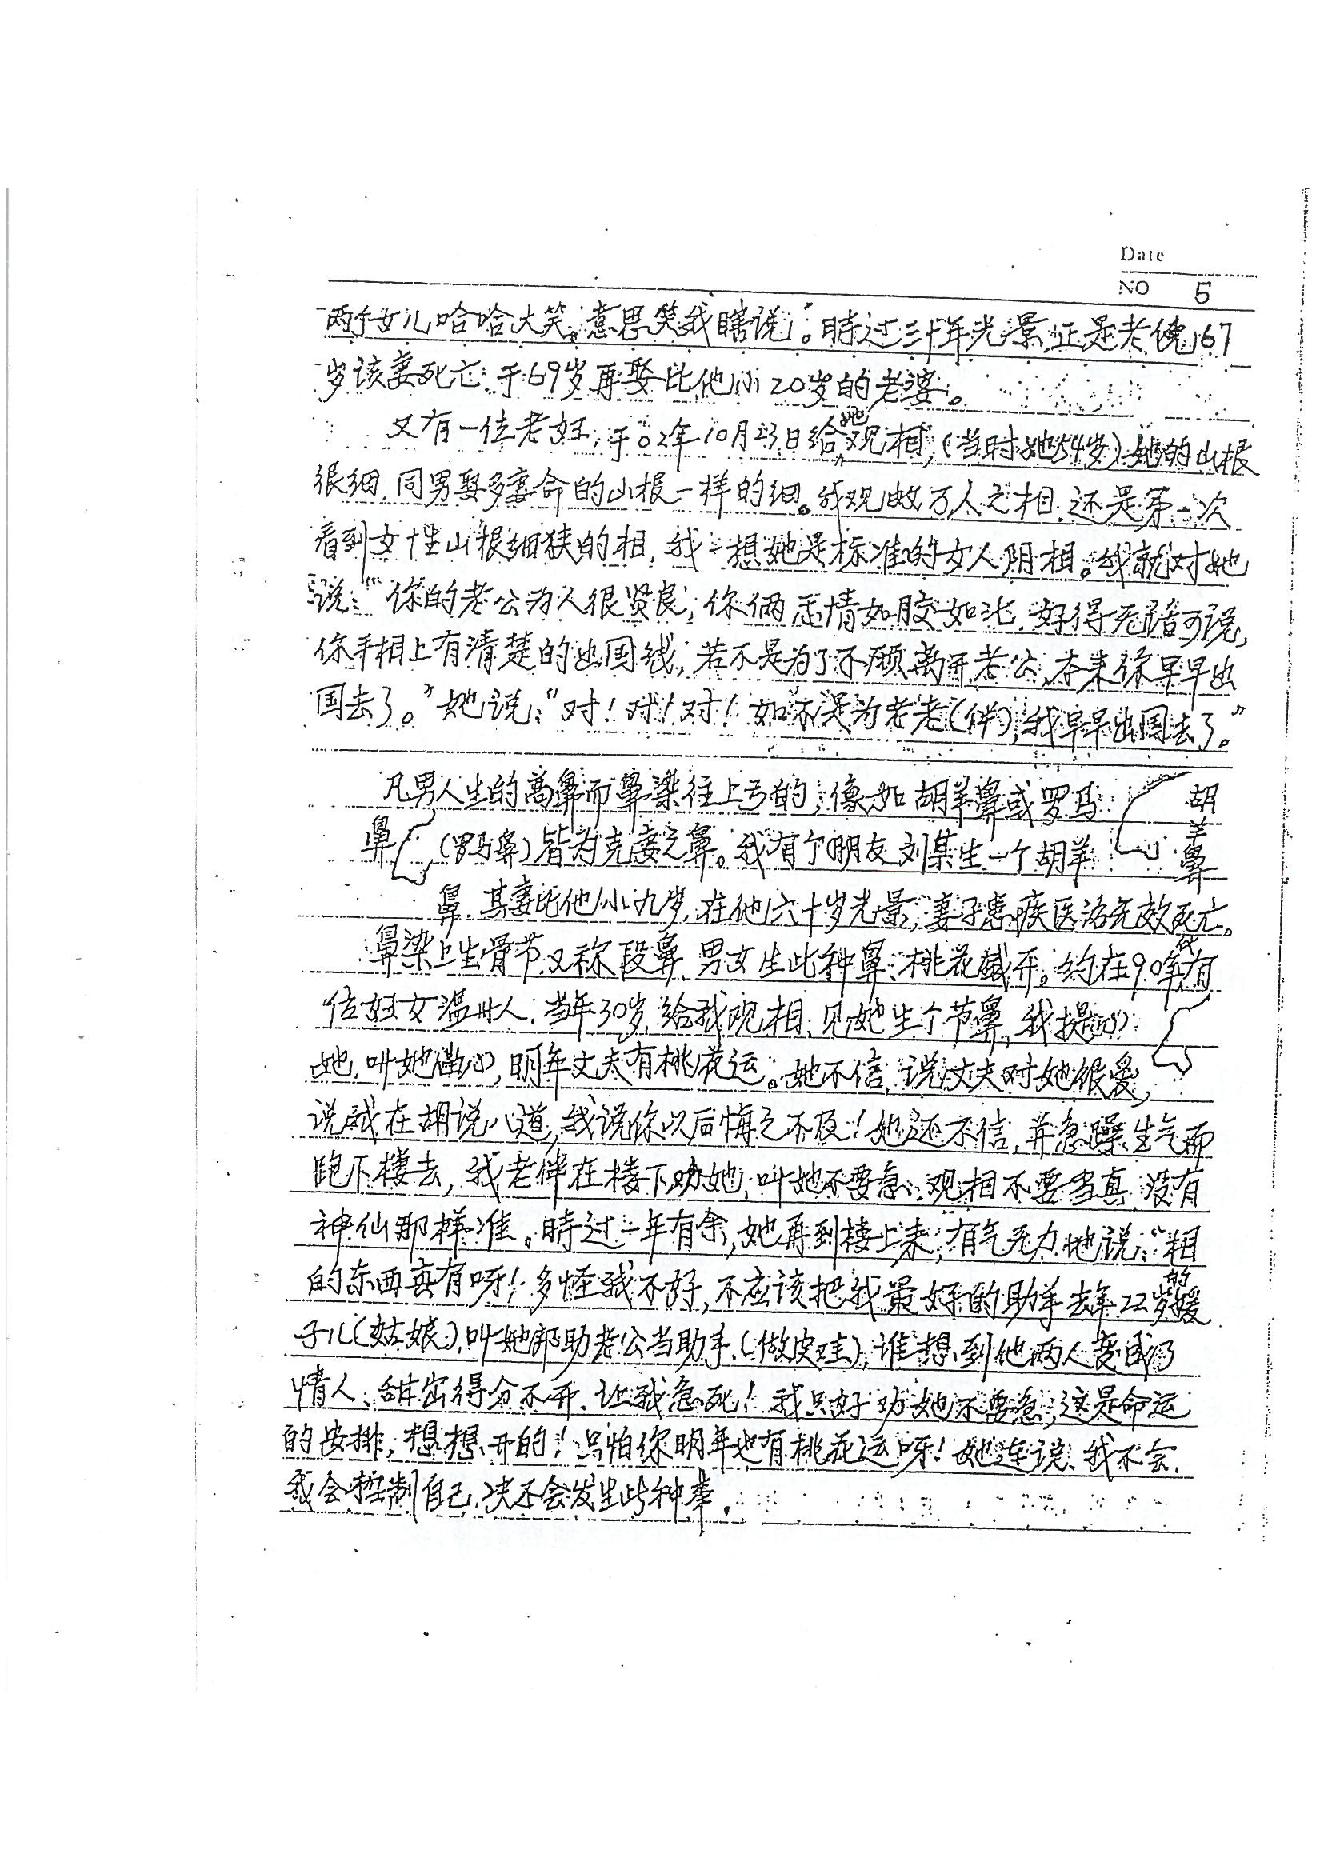 Date
NO 5
两个女儿哈哈大笑。意思笑我瞎说。時过三十年光景正是老倪67
岁该妻死亡.于69岁再娶比他小20岁的老婆。
又有一位老妇,于02年10月23日给她观相,(当时她54岁)她的山根
很细.同男娶多妻命的山根一样的细。我观数万人之相.还是第一次
看到女性山根细狭的相,我一想她是标准的女人阴相。我就对她
说:“你的老公为人很贤良,你俩恋情如胶如漆.好得无啥可说,
你手相上有清楚的出国线,若不是为了不愿离开老公,本来你早早出
国去了。”她说:“对!对!对!如不是为老老(伴),我早早出国去了。”
凡男人生的高鼻而鼻梁往上弓的,像如胡羊鼻或罗马
鼻 (罗马鼻)皆为克妻之鼻。我有个朋友刘某生一个胡羊
胡羊鼻
鼻.其妻比他小九岁.在他六十岁光景,妻子患疾医治无效死亡。
鼻梁上生骨节又称段鼻.男女生此种鼻.桃花盛开。约在90年代有
位妇女温州人.当年30岁.给我观相.见她生个节鼻,我提心
她.叫她当心,明年丈夫有桃花运。她不信.说丈夫对她很爱,
说我在胡说八道,我说你以后悔之不及!她还不信,并急躁生气而
跑下楼去,我老伴在楼下劝她,叫她不要急.观相不要当真.没有
神仙那样准。時过一年有余,她再到楼上来,有气无力地说:“相
的东西真有呀!多怪我不好,不应该把我最好的助手去年22岁的媛
子儿(姑娘),叫她帮助老公当助手.(做皮鞋),谁想到他两人变成了
情人、甜蜜得分不开.让我急死!我只好劝她不要急,这是命运
的安排,想想开的!只怕你明年也有桃花运呀!她连说.我不会.
我会控制自己.决不会发生此种事.